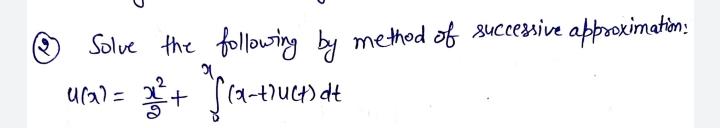 ② Solve the following by method of successive approximation:
u(x) = x²/2 + ∫₀ˣ (x-t)u(t) dt